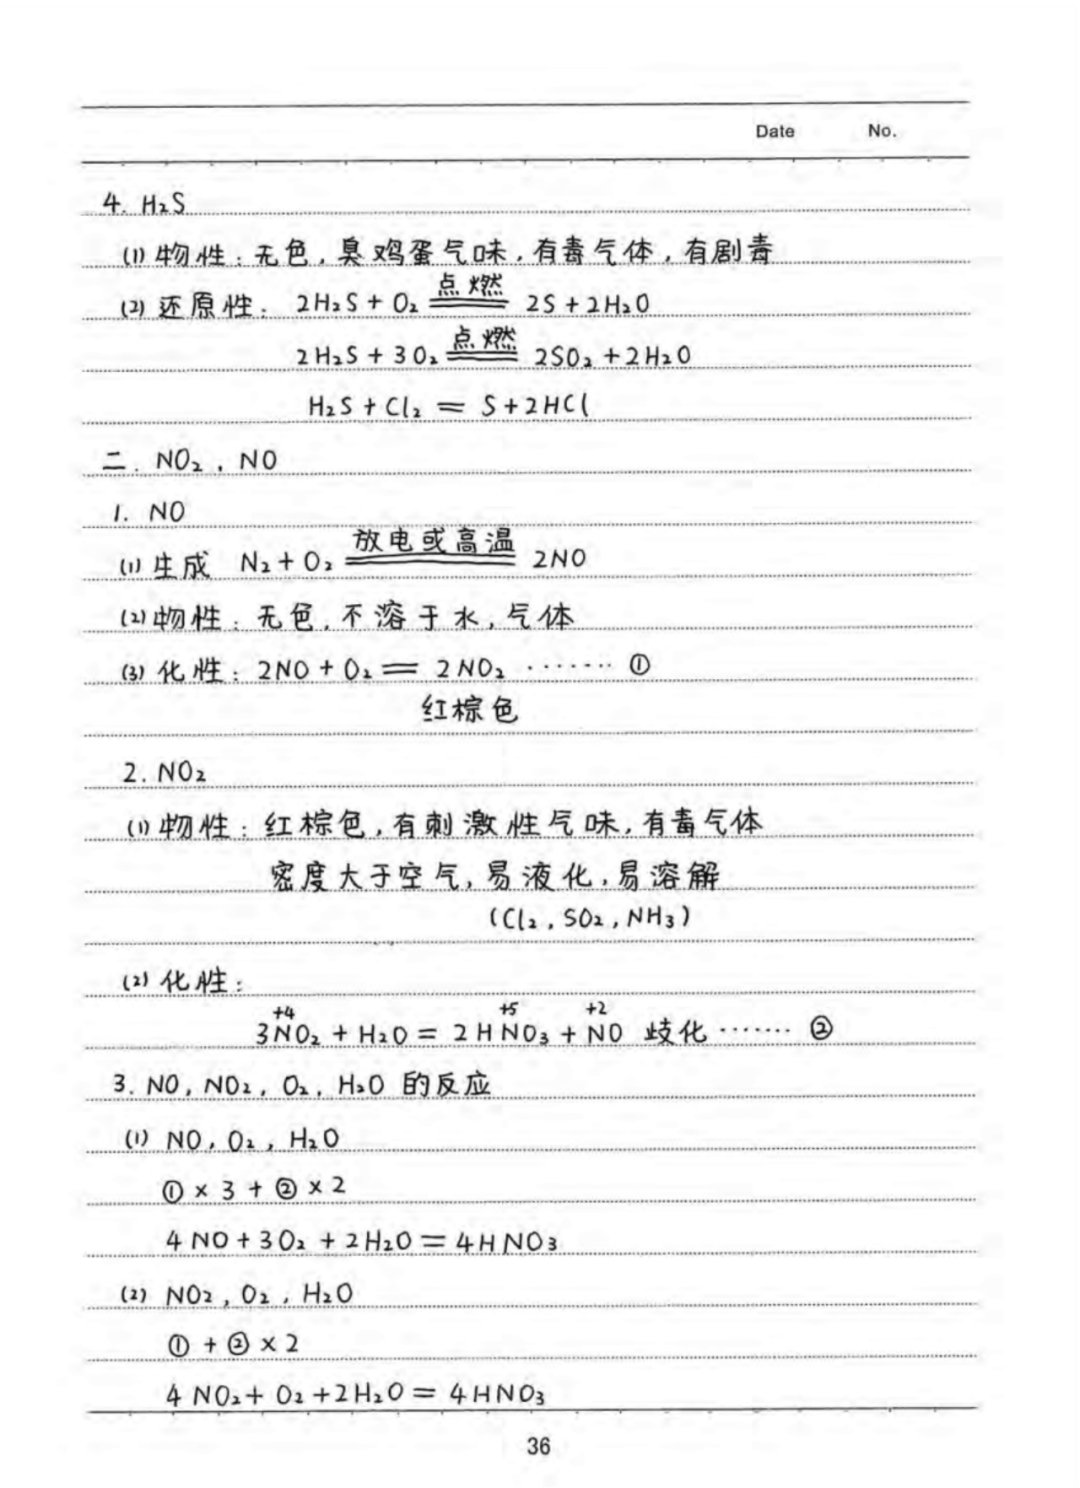 Date No.
4. H₂S
(1) 物性：无色，臭鸡蛋气味，有毒气体，有剧毒
(2) 还原性：2H₂S + O₂ 点燃 2S + 2H₂O
2H₂S + 3O₂ 点燃 2SO₂ + 2H₂O
H₂S + Cl₂ = S + 2HCl
二. NO₂，NO
1. NO
(1) 生成 N₂ + O₂ 放电或高温 2NO
(2) 物性：无色，不溶于水，气体
(3) 化性：2NO + O₂ = 2NO₂ ······· ①
红棕色
2. NO₂
(1) 物性：红棕色，有刺激性气味，有毒气体
密度大于空气，易液化，易溶解
(Cl₂，SO₂，NH₃)
(2) 化性：
+4 +5 +2
3NO₂ + H₂O = 2HNO₃ + NO 歧化 ······· ②
3. NO，NO₂，O₂，H₂O 的反应
(1) NO，O₂，H₂O
① × 3 + ② × 2
4NO + 3O₂ + 2H₂O = 4HNO₃
(2) NO₂，O₂，H₂O
① + ② × 2
4NO₂ + O₂ + 2H₂O = 4HNO₃
36